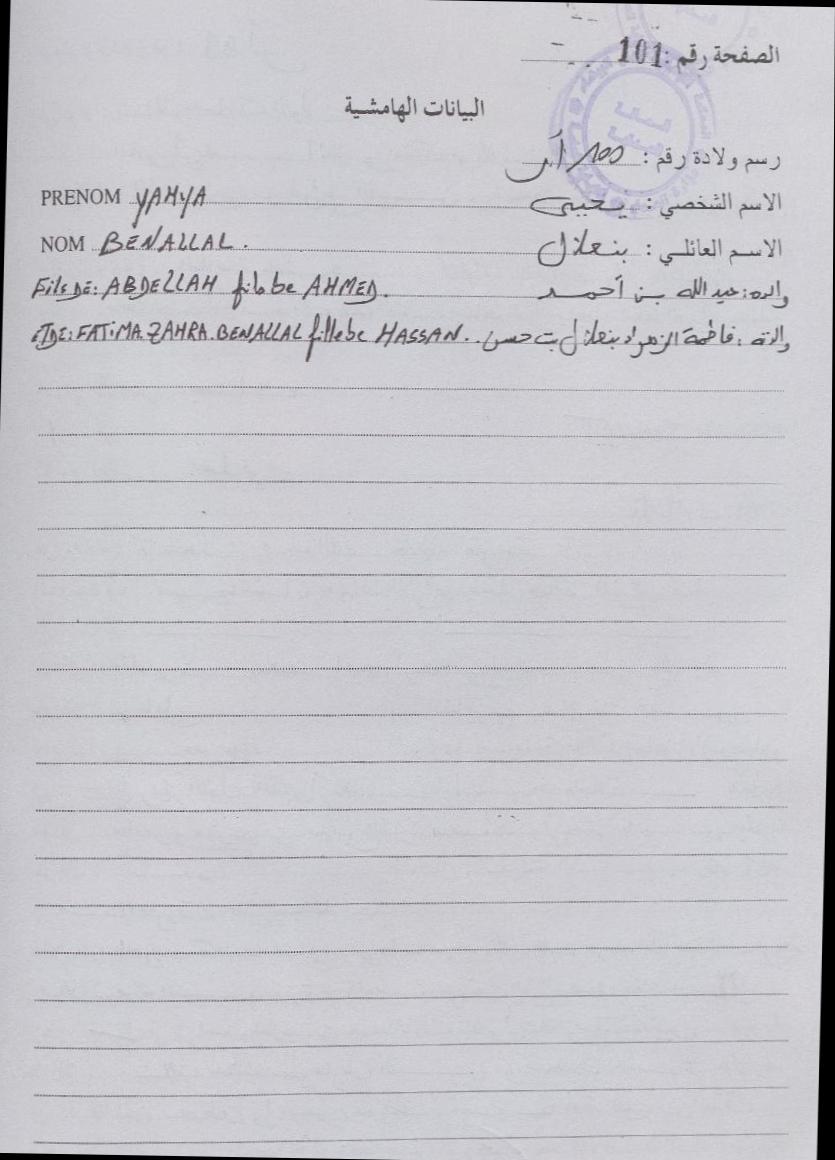 الصفحة رقم : 101
البيانات الهامشية
رسم ولادة رقم : 100/
PRENOM YAHYA الاسم الشخصي : يحيى
NOM BENALLAL . الاسم العائلي : بنعلال
Fils DE: ABDELLAH fils de AHMED. والده: عبد الله بن أحمد
ET DE: FATIMA ZAHRA. BENALLAL fille de HASSAN. والدته : فاطمة الزهراء بنعلال بنت حسن